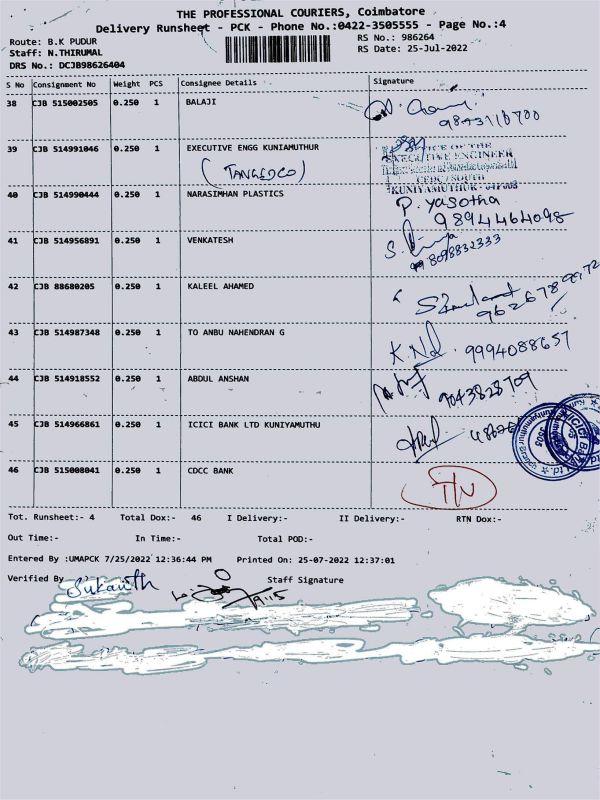 THE PROFESSIONAL COURIERS, Coimbatore
Delivery Runsheet - PCK - Phone No.:0422-3505555 - Page No.:4
Route: B.K PUDUR RS No.: 986264
Staff: N.THIRUMAL RS Date: 25-Jul-2022
DRS No.: DCJB98626404
S No Consignment No Weight PCS Consignee Details Signature
38 CJB 515002505 0.250 1 BALAJI
9843110700
39 CJB 514991046 0.250 1 EXECUTIVE ENGG KUNIAMUTHUR
OFFICE OF THE
EXECUTIVE ENGINEER
(TANGEDCO)
CEDC / SOUTH
KUNIYAMUTHUR
40 CJB 514990444 0.250 1 NARASIMHAN PLASTICS
P. yasotha
9894464098
41 CJB 514956891 0.250 1 VENKATESH
8098832333
42 CJB 88680205 0.250 1 KALEEL AHAMED
43 CJB 514987348 0.250 1 TO ANBU NAHENDRAN G
K.Nd. 9994088657
44 CJB 514918552 0.250 1 ABDUL ANSHAN
9043828709
45 CJB 514966861 0.250 1 ICICI BANK LTD KUNIYAMUTHU
46 CJB 515008041 0.250 1 CDCC BANK
Tot. Runsheet:- 4 Total Dox:- 46 I Delivery:- II Delivery:- RTN Dox:-
Out Time:- In Time:- Total POD:-
Entered By :UMAPCK 7/25/2022 12:36:44 PM Printed On: 25-07-2022 12:37:01
Verified By Sukanth Staff Signature